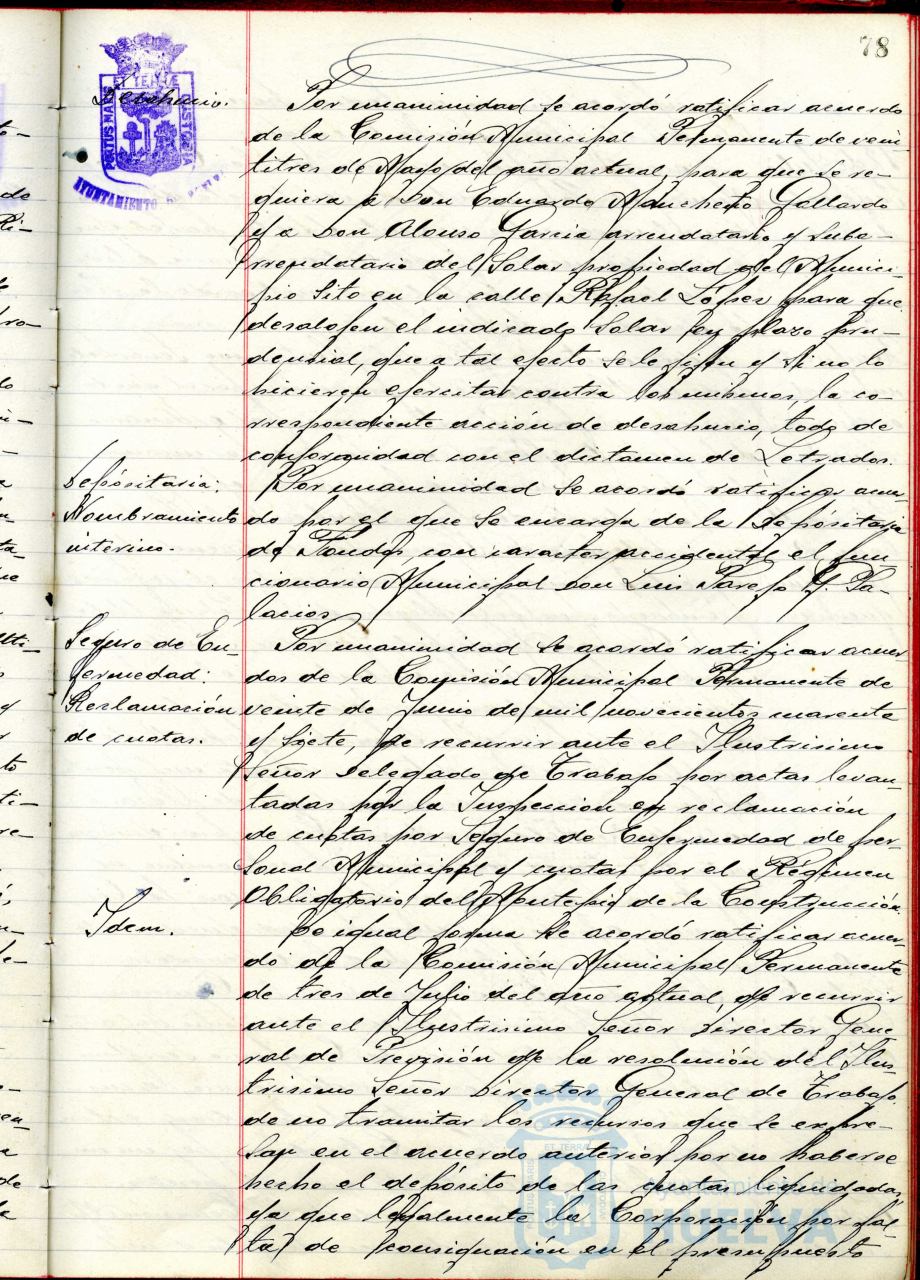 78
Desahucio.
Por unanimidad se acordó ratificar acuerdo
de la Comisión Municipal Permanente de vein
titres de Mayo del año actual, para que se re-
quiera a Don Eduardo Mancheño Gallardo
y a Don Alonso Garcia arrendatario y suba-
rrendatario del Solar propiedad del Munici-
pio sito en la calle Rafael López para que
desalojen el indicado Solar en plazo pru-
dencial, que a tal efecto se le fije y si no lo
hicieren ejercitar contra los mismos, la co-
rrespondiente acción de desahucio, todo de
conformidad con el dictamen de Letrados.
Depósitaria:
Nombramiento
interino.
Por unanimidad se acordó ratificar acuer-
do por el que se encarga de la Depósitaria
de Fondos con caracter accidental el fun
cionario Municipal Don Luis Parejo G. Pa-
lacios
Seguro de En-
fermedad:
Reclamación
de cuotas.
Por unanimidad se acordó ratificar acuer
dos de la Comisión Municipal Permanente de
veinte de Junio de mil novecientos cuarenta
y siete, de recurrir ante el Ilustrisimo
Señor Delegado de Trabajo por actas levan-
tadas por la Inspección en reclamación
de cuotas por Seguro de Enfermedad de per-
sonal Municipal y cuotas por el Régimen
Obligatorio del Montepio de la Construcción.
Idem.
De igual forma se acordó ratificar acuer-
do de la Comisión Municipal Permanente
de tres de Julio del año actual, de recurrir
ante el Ilustrisimo Señor Director Gene
ral de Previsión de la resolución del Ilus-
trisimo Señor Director General de Trabajo
de no tramitar los recursos que se expre-
san en el acuerdo anterior por no haberse
hecho el depósito de las cuotas liquidadas
ya que legalmente la Corporación por fal-
ta de consignación en el presupuesto
PORTUS MARIS ET TERRAE CUSTODIA
AYUNTAMIENTO
Ayuntamiento de
HUELVA